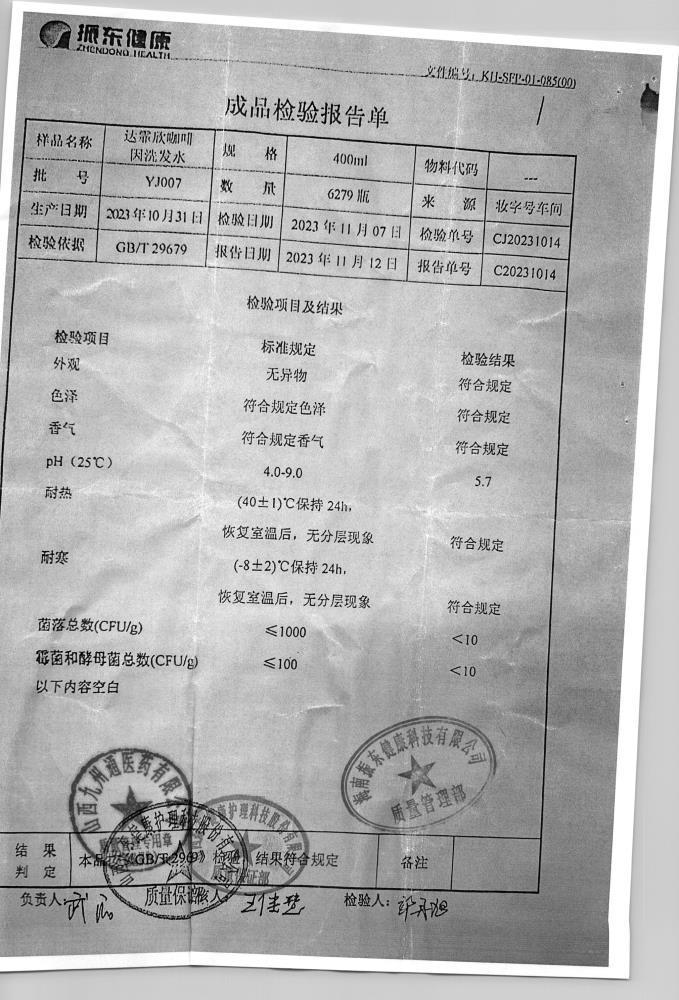 振东健康
ZHENDONG HEALTH
文件编号：KJJ-SFP-01-085(00)
成品检验报告单
样品名称 达霏欣咖啡因洗发水 规格 400ml 物料代码 ---
批号 YJ007 数量 6279瓶 来源 妆字号车间
生产日期 2023年10月31日 检验日期 2023年11月07日 检验单号 CJ20231014
检验依据 GB/T 29679 报告日期 2023年11月12日 报告单号 C20231014
检验项目及结果
检验项目 标准规定 检验结果
外观 无异物 符合规定
色泽 符合规定色泽 符合规定
香气 符合规定香气 符合规定
pH（25℃） 4.0-9.0 5.7
耐热 (40±1)℃保持24h，
恢复室温后，无分层现象 符合规定
耐寒 (-8±2)℃保持24h，
恢复室温后，无分层现象 符合规定
菌落总数(CFU/g) ≤1000 <10
霉菌和酵母菌总数(CFU/g) ≤100 <10
以下内容空白
山西九州通医药有限
专用章
护理科技股份有限公司
质量保证部
振东健康科技有限公司
质量管理部
结果判定 本品按《GB/T 29679》检验，结果符合规定 备注
负责人：
检验人：